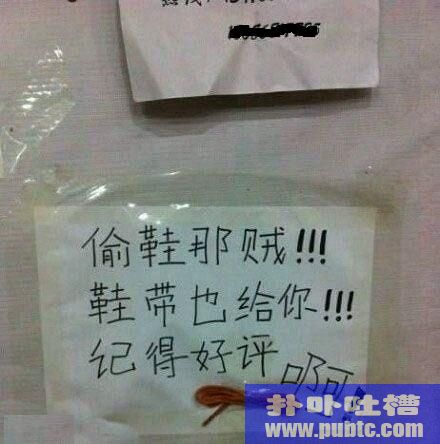 偷鞋那贼!!!
鞋带也给你!!!
纪得好评啊!
扑扑吐槽
www.pubtc.com